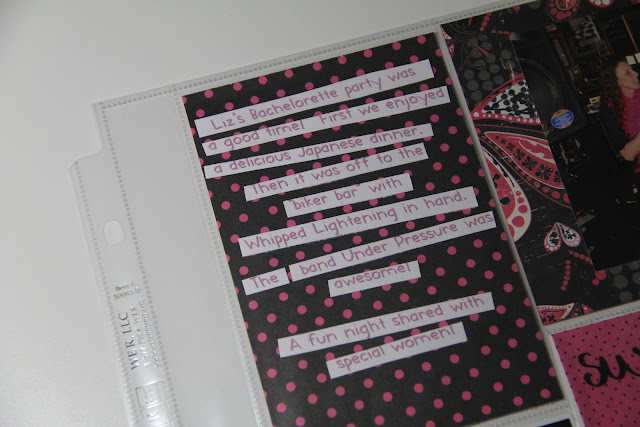 Liz's Bachelorette party was
a good time! First we enjoyed
a delicious Japanese dinner.
Then it was off to the
"biker bar" with
Whipped Lightening in hand.
The band Under Pressure was
awesome!
A fun night shared with
special women!
WER LLC